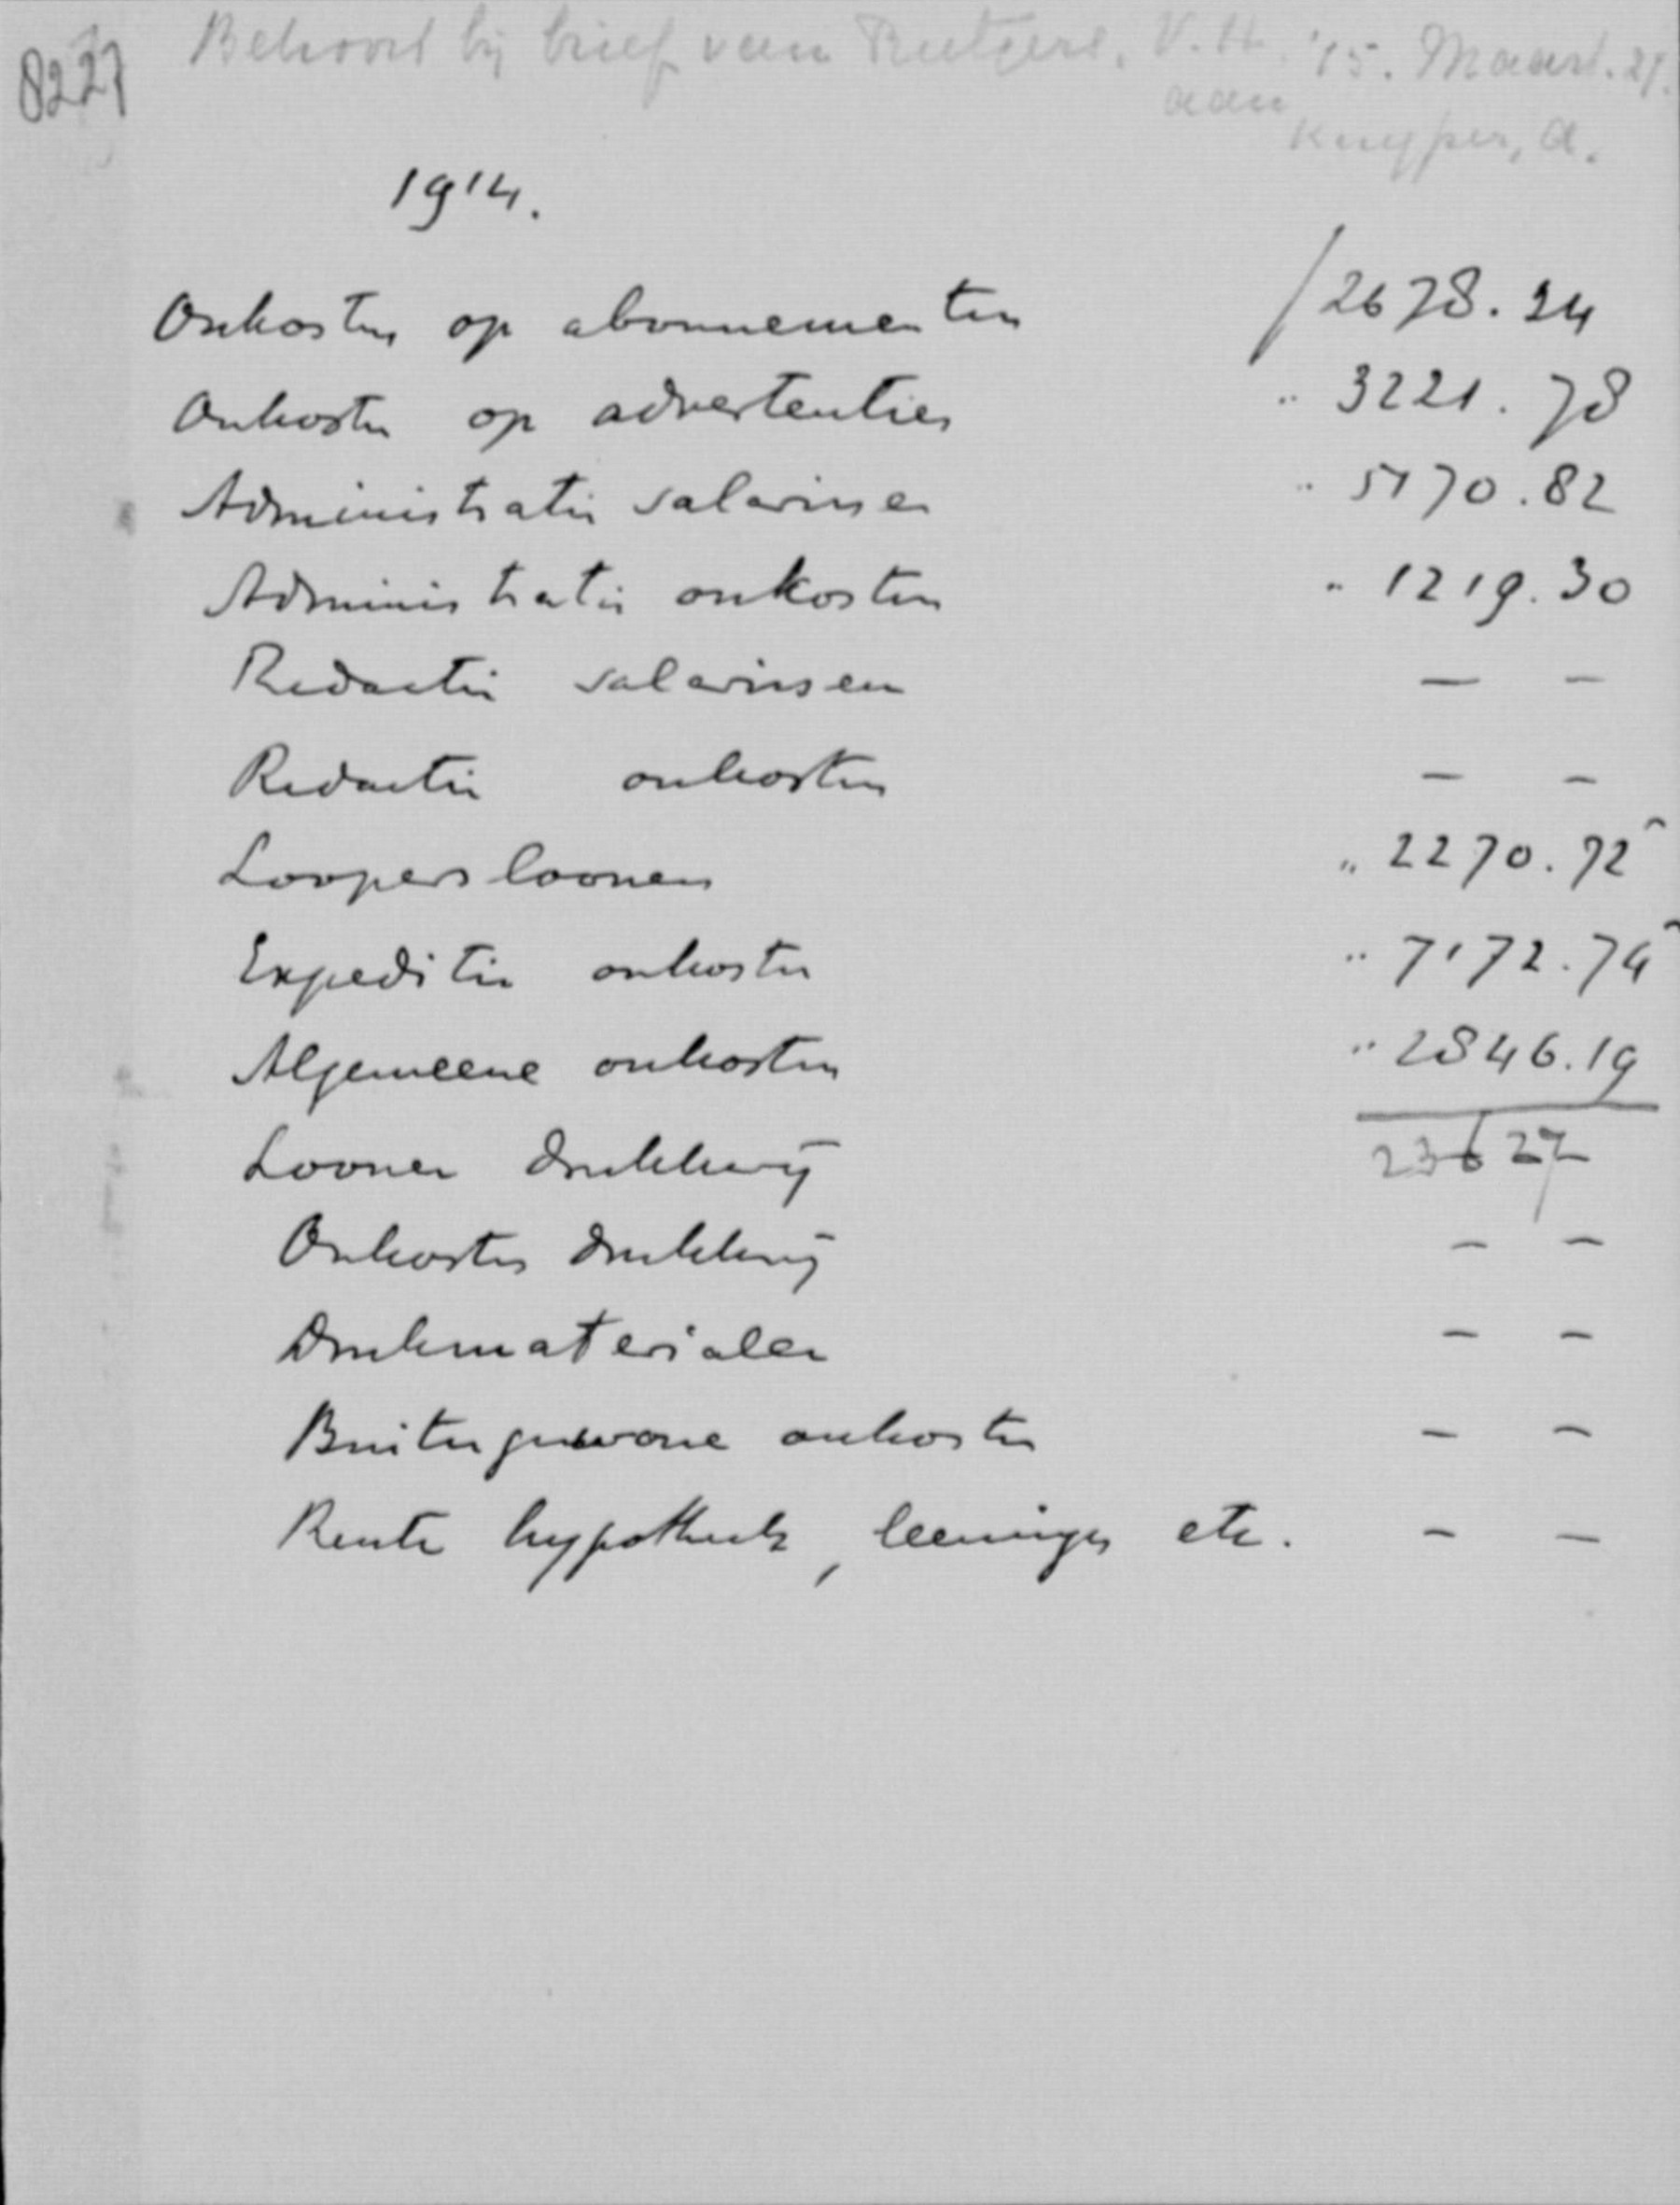 8227
Behoort bij brief van Rutgers, V.H. '15. Maart. 21.
aan
Kuyper, A.
1914.
Onkosten op abonnementen ƒ 2678.24
Onkosten op advertenties " 3221.78
Administratie salarissen " 5170.82
Administratie onkosten " 1219.30
Redactie salarissen — —
Redactie onkosten — —
Loopersloonen " 2270.72
Expeditie onkosten " 7172.74
Algemeene onkosten " 2846.19
Loonen drukkerij 23627
Onkosten drukkerij — —
Drukmaterialen — —
Buitengewone onkosten — —
Rente hypotheek, leeningen etc. — —